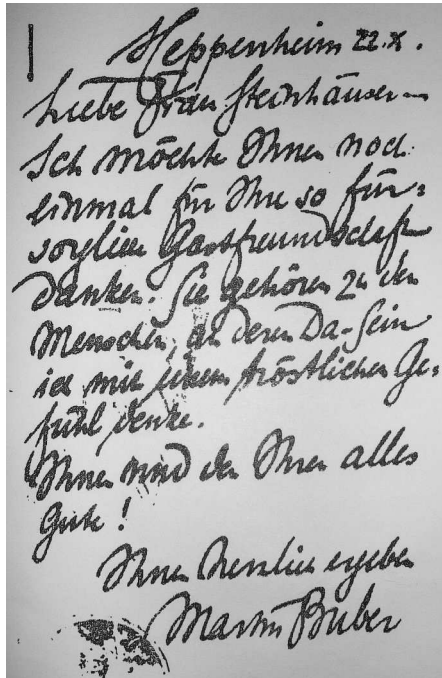 Heppenheim 22.X.
Liebe Frau Steinhäuser –
Ich möchte Ihnen noch
einmal für Ihre so für=
sorgliche Gastfreundschaft
danken. Sie gehören zu den
Menschen, an deren Da-Sein
ich mit einem tröstlichen Ge=
fühl denke.
Ihnen und den Ihren alles
Gute!
Ihnen herzlich ergeben
Martin Buber